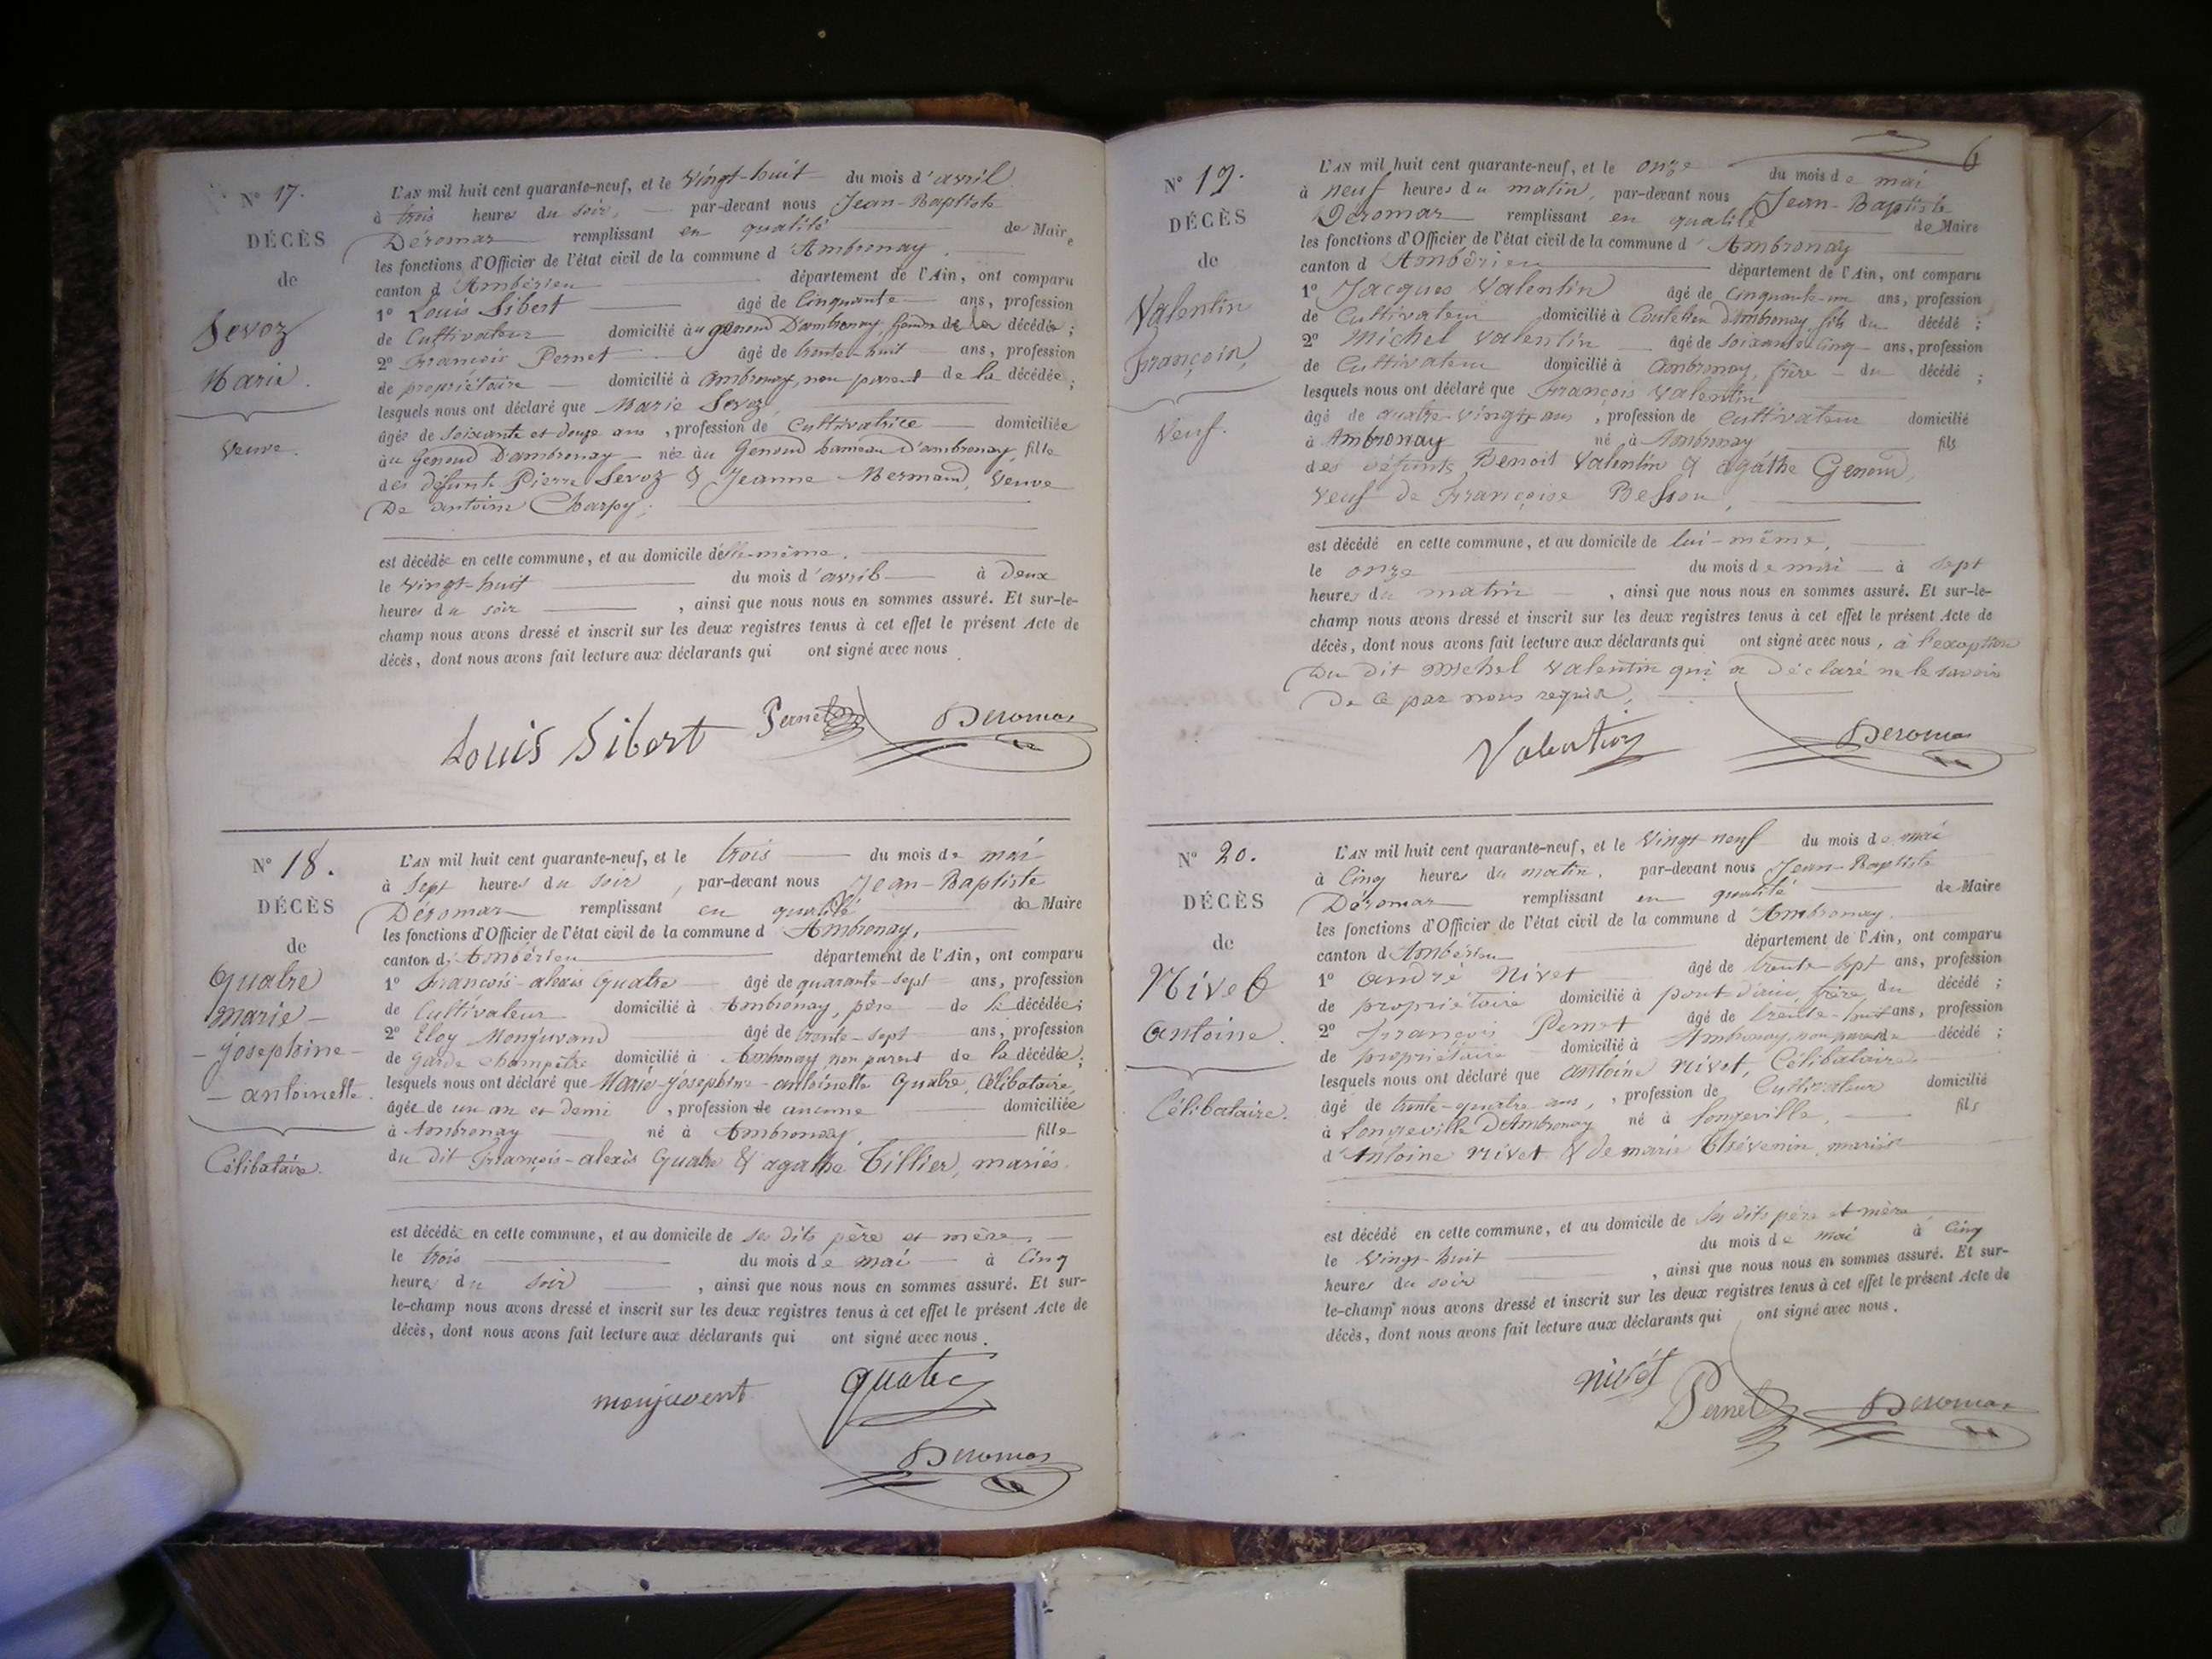 N° 17.
DÉCÈS
de
Sevoz
Marie.
Veuve.
L'AN mil huit cent quarante-neuf, et le vingt-huit du mois d'avril
à trois heures du soir, par-devant nous Jean-Baptiste
Déromas remplissant en qualité de Maire
les fonctions d'Officier de l'état civil de la commune d'Ambronay.
canton d'Ambérieu département de l'Ain, ont comparu
1° Louis Sibert âgé de Cinquante ans, profession
de Cultivateur domicilié au genoud D'ambronay, gendre de la décédée ;
2° François Pernet âgé de trente-huit ans, profession
de propriétaire domicilié à ambronay, non parent de la décédée ;
lesquels nous ont déclaré que Marie Sevoz,
âgée de Soixante et douze ans, profession de Cultivatrice domiciliée
au Genoud D'ambronay née au Genoud hameau D'ambronay, fille
des défunts Pierre Sevoz & Jeanne Mermand, Veuve
De antoine Charpy ;
est décédée en cette commune, et au domicile d'elle-même,
le vingt-huit du mois d'avril à Deux
heures du soir, ainsi que nous nous en sommes assuré. Et sur-le-
champ nous avons dressé et inscrit sur les deux registres tenus à cet effet le présent Acte de
décès, dont nous avons fait lecture aux déclarants qui ont signé avec nous.
Louis Sibert Pernet Deromas
N° 18.
DÉCÈS
de
Quatre
Marie-
-Josephine-
-antoinette.
Célibataire.
L'AN mil huit cent quarante-neuf, et le trois du mois de mai
à Sept heures du soir, par-devant nous Jean-Baptiste
Déromas remplissant en qualité de Maire
les fonctions d'Officier de l'état civil de la commune d'Ambronay,
canton d'Ambérieu département de l'Ain, ont comparu
1° François-alexis Quatre âgé de quarante-sept ans, profession
de Cultivateur domicilié à Ambronay, père de la décédée ;
2° Eloy Monjuvand âgé de trente-sept ans, profession
de garde champêtre domicilié à Ambronay non parent de la décédée ;
lesquels nous ont déclaré que Marie-Josephine-antoinette Quatre, Célibataire,
âgée de un an et demi, profession de aucune domiciliée
à Ambronay né à Ambronay, fille
du dit François-alexis Quatre & agathe Tillier, mariés.
est décédée en cette commune, et au domicile de ses dits père et mère,
le trois du mois de mai à Cinq
heures du soir, ainsi que nous nous en sommes assuré. Et sur-
le-champ nous avons dressé et inscrit sur les deux registres tenus à cet effet le présent Acte de
décès, dont nous avons fait lecture aux déclarants qui ont signé avec nous.
monjuvent quatre
Deromas
6
N° 19.
DÉCÈS
de
Valentin
François,
Veuf.
L'AN mil huit cent quarante-neuf, et le onze du mois de mai
à neuf heures du matin, par-devant nous Jean-Baptiste
Déromas remplissant en qualité de Maire
les fonctions d'Officier de l'état civil de la commune d'Ambronay
canton d'Ambérieu département de l'Ain, ont comparu
1° Jacques Valentin âgé de Cinquante-un ans, profession
de Cultivateur domicilié à D'ambronay, fils du décédé ;
2° Michel Valentin âgé de soixante-Cinq ans, profession
de Cultivateur domicilié à Ambronay, frère du décédé ;
lesquels nous ont déclaré que François Valentin
âgé de quatre-vingts ans, profession de Cultivateur domicilié
à Ambronay né à Ambronay fils
des défunts Benoit Valentin & agathe Genoud,
Veuf de Françoise Besson,
est décédé en cette commune, et au domicile de lui-même,
le onze du mois de mai à sept
heures du matin, ainsi que nous nous en sommes assuré. Et sur-le-
champ nous avons dressé et inscrit sur les deux registres tenus à cet effet le présent Acte de
décès, dont nous avons fait lecture aux déclarants qui ont signé avec nous, à l'exeption
Du dit Michel Valentin qui a Déclaré ne le savoir
De ce par nous requis,
Valentin Deromas
N° 20.
DÉCÈS
de
Nivet
Antoine.
Célibataire.
L'AN mil huit cent quarante-neuf, et le Vingt-neuf du mois de mai
à Cinq heures du matin, par-devant nous Jean-Baptiste
Déromas remplissant en qualité de Maire
les fonctions d'Officier de l'état civil de la commune d'Ambronay.
canton d'Ambérieu département de l'Ain, ont comparu
1° andré Nivet âgé de trente-sept ans, profession
de propriétaire domicilié à pont-d'ain, frère du décédé ;
2° François Pernet âgé de trente-huit ans, profession
de propriétaire domicilié à Ambronay, non parent du décédé ;
lesquels nous ont déclaré que antoine Nivet, Célibataire,
âgé de trente-quatre ans, profession de Cultivateur domicilié
à Longeville D'Ambronay né à Longeville, fils
d'Antoine Nivet & de marie Thévenin, mariés
est décédé en cette commune, et au domicile de ses dits père et mère,
le Vingt-huit du mois de mai à Cinq
heures du soir, ainsi que nous nous en sommes assuré. Et sur-
le-champ nous avons dressé et inscrit sur les deux registres tenus à cet effet le présent Acte de
décès, dont nous avons fait lecture aux déclarants qui ont signé avec nous.
nivét Pernet Deromas